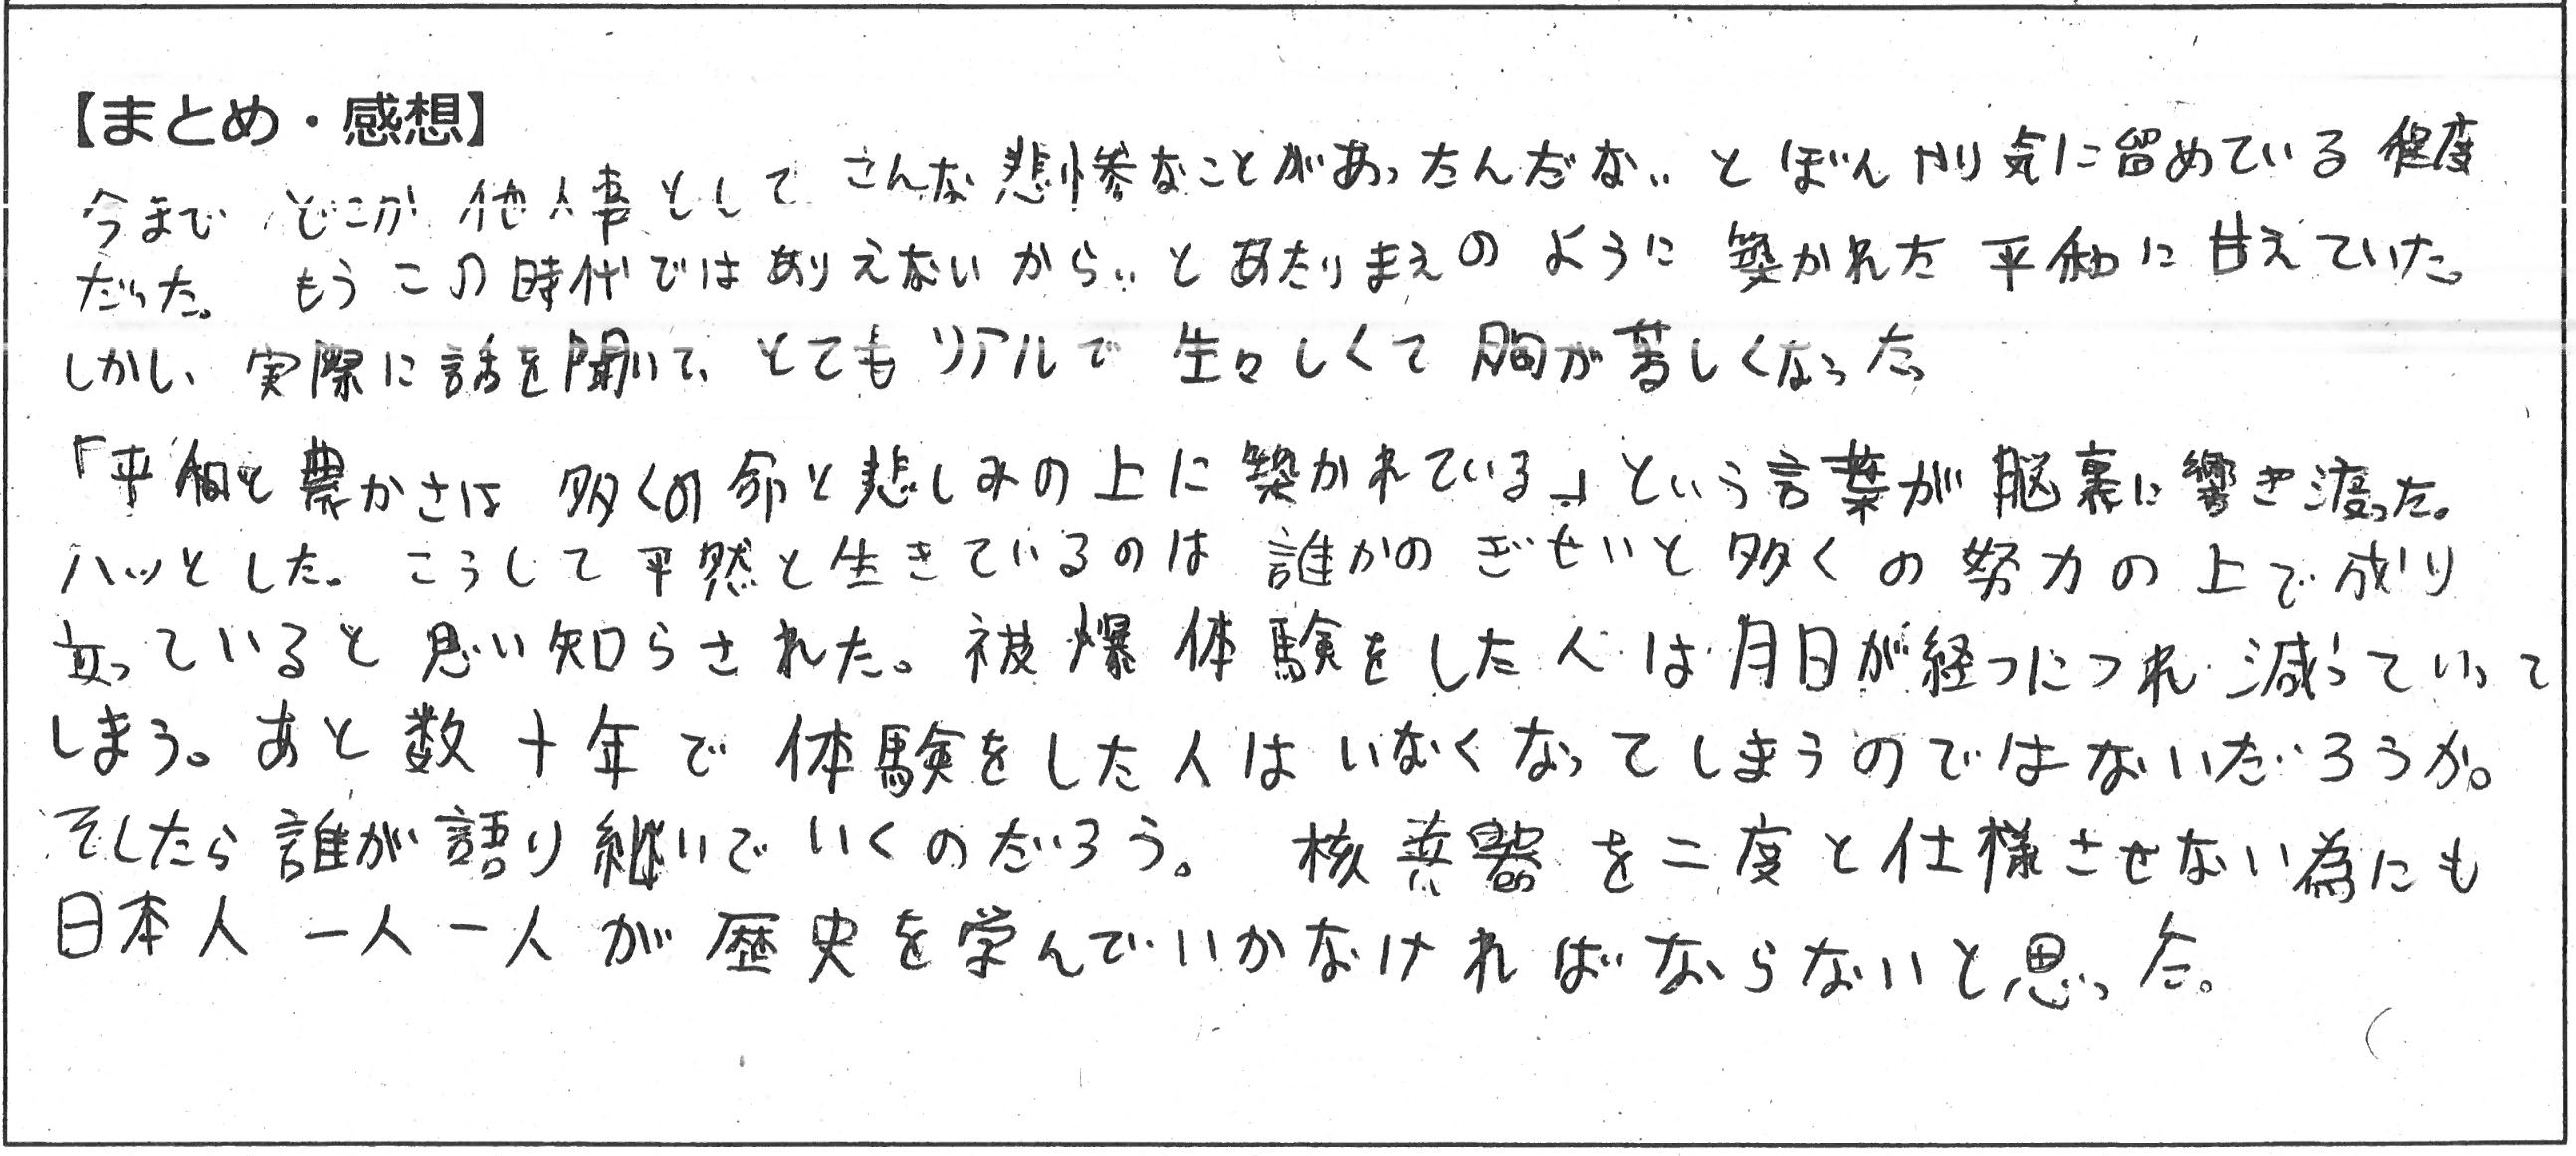 【まとめ・感想】
今まで どこか 他人事として さんな悲惨なことがあったんだな‥ とぼんやり気に留めている程度
だった。 もうこの時代ではありえないから‥とあたりまえのように築かれた平和に甘えていた。
しかし、実際に話を聞いて、とてもリアルで生々しくて胸が苦しくなった。
「平和と豊かさは多くの命と悲しみの上に築かれている」という言葉が脳裏に響き渡った。
ハッとした。こうして平然と生きているのは誰かのぎせいと多くの努力の上で成り
立っていると思い知らされた。被爆体験をした人は月日が経つにつれ減っていって
しまう。あと数十年で体験をした人はいなくなってしまうのではないだろうか。
そしたら誰が語り継いでいくのだろう。 核兵器を二度と仕様させない為にも
日本人一人一人が歴史を学んでいかなければならないと思った。